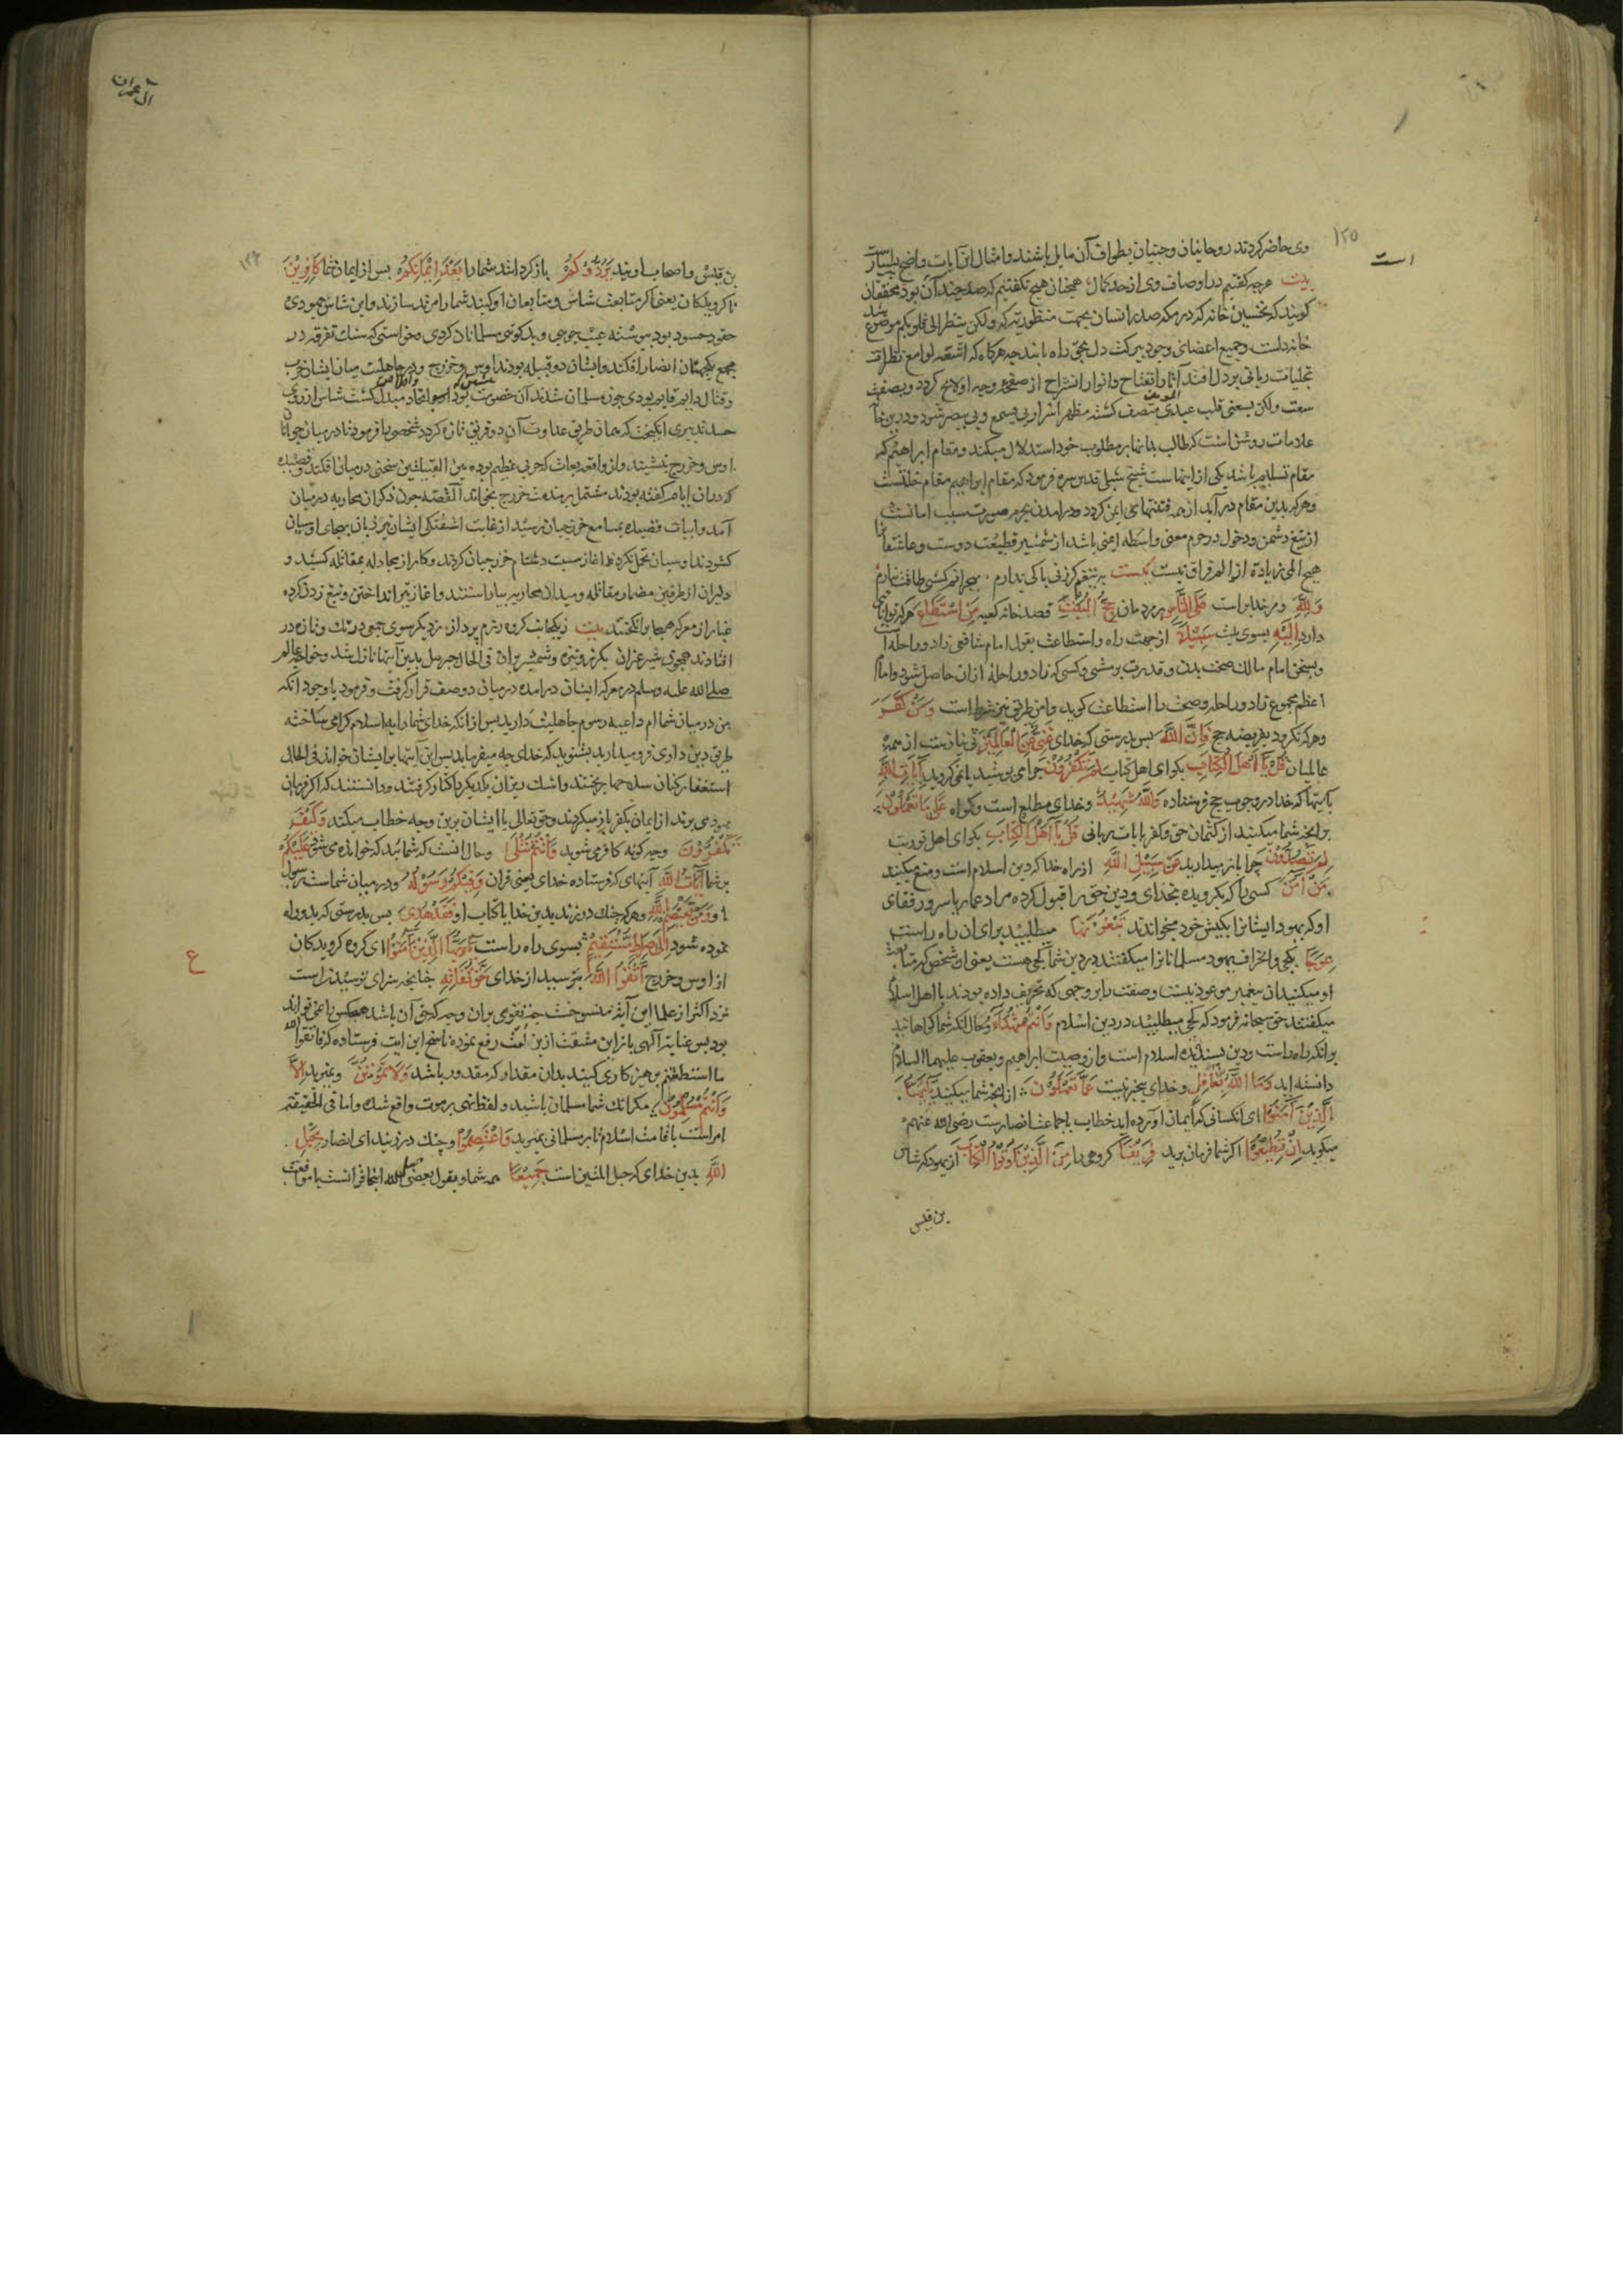 آل عمران
١٢٥
است
وی حاضر کردند روحانیان و جنیان بطواف آن مایل باشند و امثال این آیات واضح بسیارست
بیت هرچه کفتیم در اوصاف وی از حد کمال همچنان هیچ نکفتیم که صد چندان بود محققان
کویند که نخستین خانه که در مکه صدر انسان بجهت منظوریت که ولکن ینظر الی قلوبکم موضوع شد
خانه دلست و جمیع اعضای وجود ببرکت دل بحق راه یابند چه هرکاه که اشعه لوامع نظرات
تجلیات ربانی بر دل افتد آثار انفتاح و انوار انشراح از صفحه وجه او لایح کردد و بصفت
سعت ولکن یسعنی قلب عبدی متصف کشته مظهر اسرار بی یسمع و بی یبصر شود و درین خانه
علامات روشن است که طالب بدانها بر مطلوب خود استدلال میکند و مقام ابراهیم که
مقام تسلیم باشد یکی از اینهاست شیخ شبلی قدس سره فرمود که مقام ابراهیم مقام خلتست
و هرکه بدین مقام درآید از همه فتنها ایمن کردد و در امدن بحرم صورت سبب امانست
از تیغ دشمن و دخول در حرم معنی واسطه ایمنی باشد از شمشیر قطیعت دوست و عاشقانرا
هیچ المی زیاده از الم فراق نیست بیت به تیغم کر زنی باکی ندارم بهجرانم کشی طاقت نیارم
وَلِلَّهِ و مر خدایراست عَلَى النَّاسِ بر مردمان حِجُّ الْبَيْتِ قصد خانه کعبه مَنِ اسْتَطَاعَ هرکه توانایی
دارد اِلَيْهِ بسوی بیت سَبِيْلًا از جهت راه و استطاعت بقول امام شافعی زاد و راحله است
و بسخن امام مالک صحت بدن و قدرت بر مشی و کسی که زاد و راحله ازان حاصل شود و امام
اعظم مجموع زاد و راحله و صحت را استطاعت کوید و امن طریق نیز شرط است وَمَنْ كَفَرَ
و هرکه نکرود بفریضه حج فَاِنَّ اللَّهَ بس بدرستی که خدای غَنِيٌّ عَنِ الْعَالَمِيْنَ بی نیازست از همه
عالمیان قُلْ يَا اَهْلَ الْكِتَابِ بکو ای اهل کتاب لِمَ تَكْفُرُوْنَ چرا می پوشید یا نمی کروید بِآيَاتِ اللَّهِ
بآیتها که خدا در وجوب حج فرستاده وَاللَّهُ شَهِيْدٌ و خدای مطلع است و کواه عَلَى مَا تَعْمَلُوْنَ
بر انچه شما میکنید از کتمان حق و کفر بآیات ربانی قُلْ يَا اَهْلَ الْكِتَابِ بکو ای اهل توریت
لِمَ تَصُدُّوْنَ چرا باز میدارید عَنْ سَبِيْلِ اللَّهِ از راه خدا که دین اسلام است و منع میکنید
مَنْ اٰمَنَ کسی را که بکرویده بخدای و دین حق را قبول کرده مراد عمار یاسر و رفقای
او که یهود ایشانرا بکیش خود میخواندند تَبْغُوْنَهَا میطلبید برای ان راه راست
عِوَجًا کجی و انحراف یهود مسلمانانرا میکفتند در دین شما کجی هست یعنی ان شخص که متابعت
او میکنید ان پیغمبر موعود نیست و صفت را بر وجهی که تحریف داده بودند با اهل اسلام
میکفتند حق سبحانه فرمود که کجی میطلبید در دین اسلام وَاَنْتُمْ شُهَدَآءُ و حال انکه شما کواهانید
بر انکه راه راست و دین پسندیده اسلام است و از وصیت ابراهیم و یعقوب علیهما السلام
دانسته اید وَمَا اللَّهُ بِغَافِلٍ و خدای بیخبر نیست عَمَّا تَعْمَلُوْنَ از انچه شما میکنید يَا اَيُّهَا
الَّذِيْنَ آمَنُوْا ای انکسانی که ایمان آورده اید خطاب با جماعت انصارست رضی الله عنهم
میکوید اِنْ تُطِيْعُوْا اکر شما فرمان برید فَرِيْقًا کروهی را مِنَ الَّذِيْنَ اُوتُوا الْكِتَابَ از یهود که شاس
بن قیس
بن قیس و اصحاب اویند يَرُدُّوْكُمْ باز کردانند شما را بَعْدَ اِيْمَانِكُمْ بس از ایمان شما كَافِرِيْنَ
ناکرویدکان یعنی اکر متابعت شاس و متابعان او کنید شما را مرتد سازند و این شاس یهودی
حقود حسود بود پیوسته عیب جویی و بدکویی مسلمانان کردی و میخواستی که سنک تفرقه در
مجمع یکجهتان انصار افکند و ایشان دو قبیله بودند اوس و خزرج و در جاهلیت میان ایشان حرب
و قتال دایم قایم بودی چون مسلمان شدند آن خصومت باتحاد مبدل کشت شاس از روی
حسد تدبیری انکیخت که همان طریق عداوت آن دو فرقه تازه کردد شخصی را فرمود تا در میان جوانان
اوس و خزرج بنشیند و از واقعه بعاث که حربی عظیم بوده بین القبیلتین سخنی درمیان افکند و قصیده
که دران ایام کفته بودند مشتمل بر مذمت خزرج بخواند القصه چون ذکر ان محاربه درمیان
آمد و ابیات قصیده بمسامع خزرجیان رسید از غایت اشفتکی ایشان نیز زبان بهجای اوسیان
کشودند اوسیان تحمل نکرده اغاز سب و شتم خزرجیان کردند و کار از مجادله بمقاتله کشید و
دلیران از طرفین مضمار مقاتله و میدان محاربه بیاراستند و اغاز تیر انداختن و تیغ زدن کرده
غبار از معرکه هیجا برانکیختند بیت ز یکجانب کروه رزم پرداز، ز دیکر سوی جمعی در تک و تاز در
افتادند همچون شیر غران بکرز و نیزه و شمشیر بران فی الحال جبریل بدین آیتها نازل شد و خواجه عالم
صلی الله علیه وسلم در معرکه ایشان درامده درمیان دو صف قرار کرفت و فرمود با وجود انکه
من درمیان شما ام داعیه رسوم جاهلیت دارید بس از انکه خدای شما را به اسلام کرامی ساخته
طریق دین داری فرو میدارید بشنوید که خدای چه میفرماید بس این آیتها بر ایشان خواند فی الحال
استغفار کنان سلاحها بریختند و اشک ریزان یکدیکر را کنار کرفتند و دانستند که اکر فرمان
یهود می برند از ایمان بکفر باز میکردند و حق تعالی با ایشان برین وجه خطاب میکند وَكَيْفَ
تَكْفُرُوْنَ و چه کونه کافر می شوید وَاَنْتُمْ تُتْلَى و حال انست که شمائید که خوانده می شود عَلَيْكُمْ
بر شما آيَاتُ اللَّهِ آیتهای که فرستاده خدای یعنی قران وَفِيْكُمْ رَسُوْلُهُ و درمیان شماست رسول
او وَمَنْ يَعْتَصِمْ بِاللَّهِ و هرکه چنک در زند بدین خدا یا کتاب او فَقَدْ هُدِيَ بس بدرستی که بدو راه
نموده شود اِلَى صِرَاطٍ مُسْتَقِيْمٍ بسوی راه راست يَا اَيُّهَا الَّذِيْنَ آمَنُوْا ای کروه کرویدکان
از اوس و خزرج اتَّقُوا اللَّهَ بترسید از خدای حَقَّ تُقَاتِهِ چنانچه سزای ترسیدنست
نزد اکثر از علما این آیه منسوخست چه تقوی بران وجه که حق آن باشد هیچکس را نمی تواند
بود بس عنایت آلهی باز این مشقت ازین امت رفع نموده ناسخ این ایت فرستاده که فاتقوا الله
ما استطعتم پرهیزکاری کنید بدان مقدار که مقدور باشد وَلَا تَمُوْتُنَّ و نمیرید اِلَّا
وَاَنْتُمْ مُسْلِمُوْنَ مکر انک شما مسلمان باشید و لفظ نهی بر موت واقع شده و اما فی الحقیقه
امر است باقامت اسلام تا بر مسلمانی بمیرید وَاعْتَصِمُوْا و چنک در زنید ای انصار بِحَبْلِ
اللَّهِ بدین خدای که حبل المتین است جَمِيْعًا همه شما و بقول بعضی حبل الله اینجا قرانست یا موافقت
ع